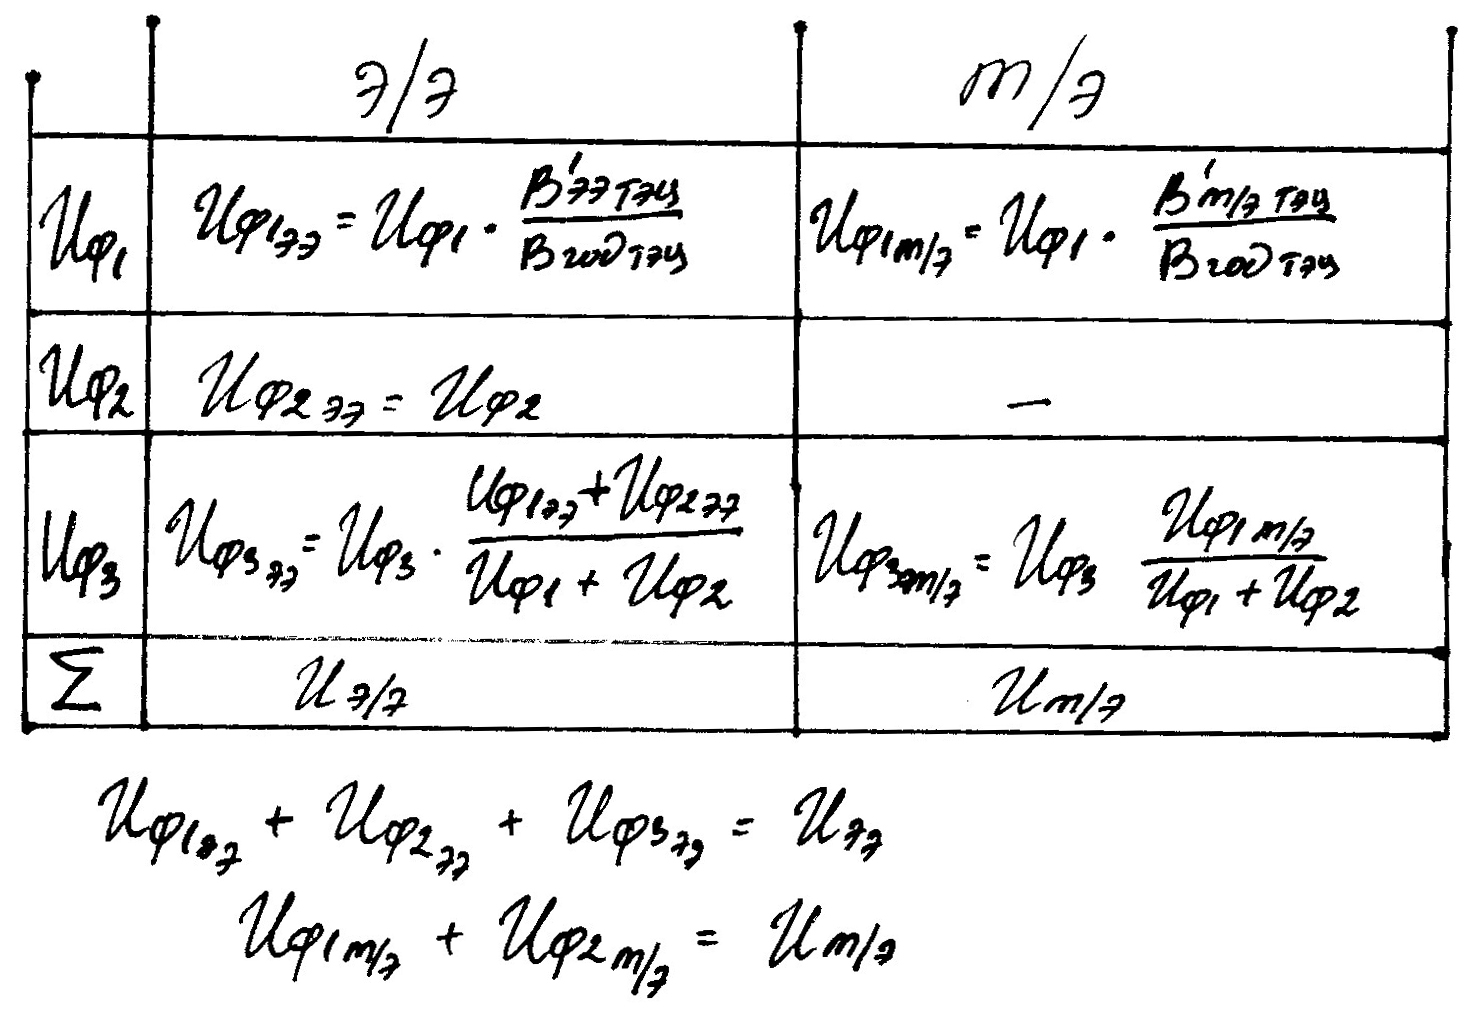 э/э т/э
Иф1 Иф1ээ = Иф1 · B'ээ тэц / B год тэц Иф1т/э = Иф1 · B'т/э тэц / B год тэц
Иф2 Иф2ээ = Иф2 —
Иф3 Иф3ээ = Иф3 · Иф1ээ + Иф2ээ / Иф1 + Иф2 Иф3т/э = Иф3 Иф1т/э / Иф1 + Иф2
Σ Иэ/э Ит/э
Иф1ээ + Иф2ээ + Иф3ээ = Иээ
Иф1т/э + Иф2т/э = Ит/э